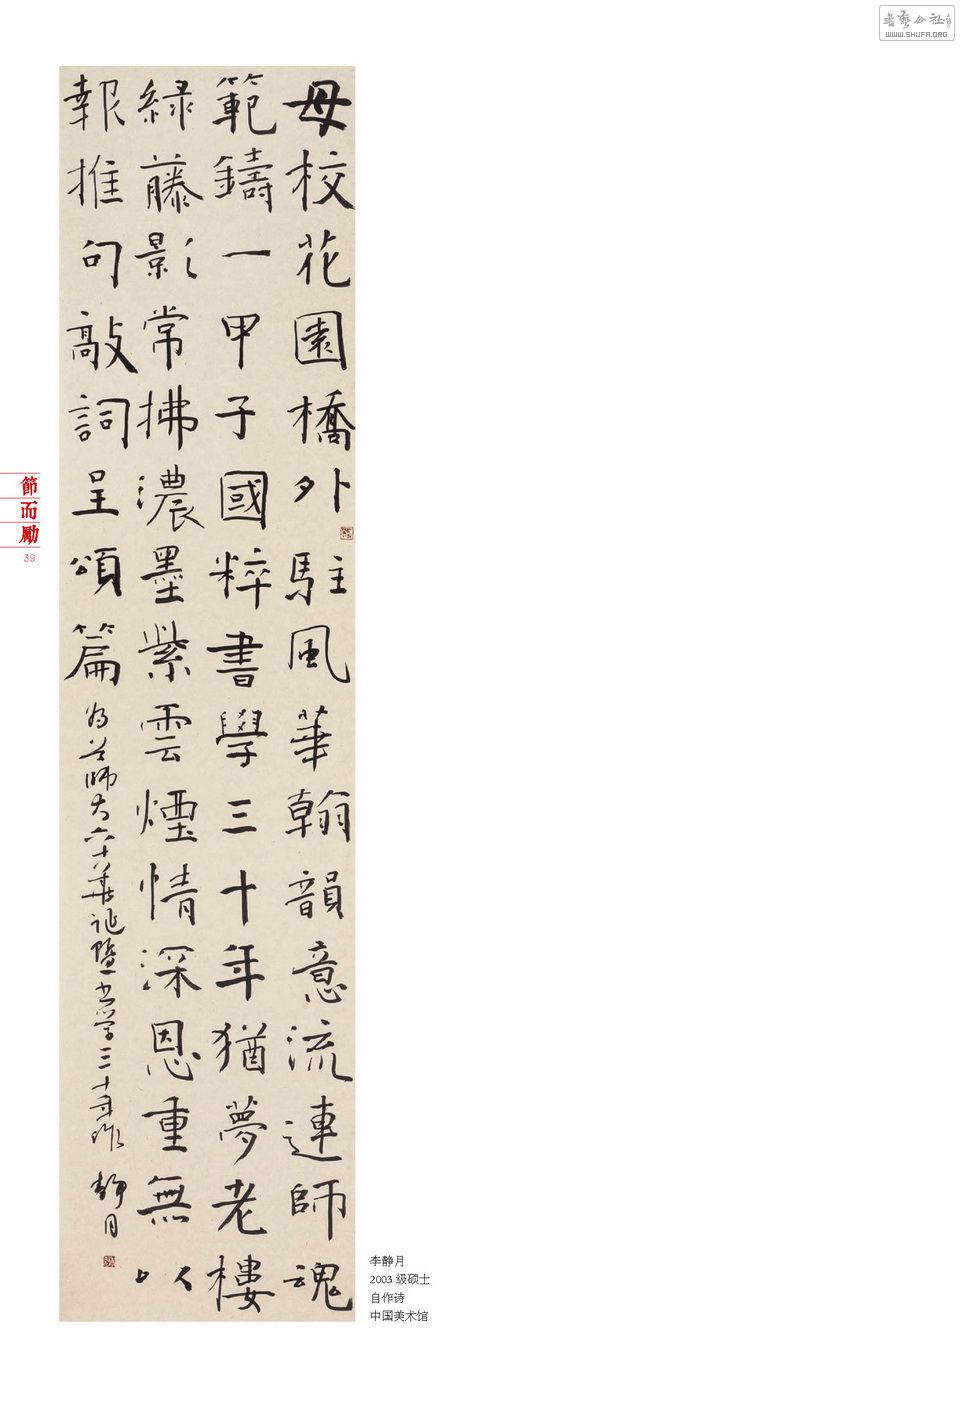 書藝公社
WWW.SHUFA.ORG
母校花園橋外駐風華翰韻意流連師魂
範鑄一甲子國粹書學三十年猶夢老樓
綠藤影常拂濃墨紫雲煙情深恩重無以
報推句敲詞呈頌篇
為首師大六十華誕暨书学三十年作 靜月
節而勵
39
李静月
2003 级硕士
自作诗
中国美术馆